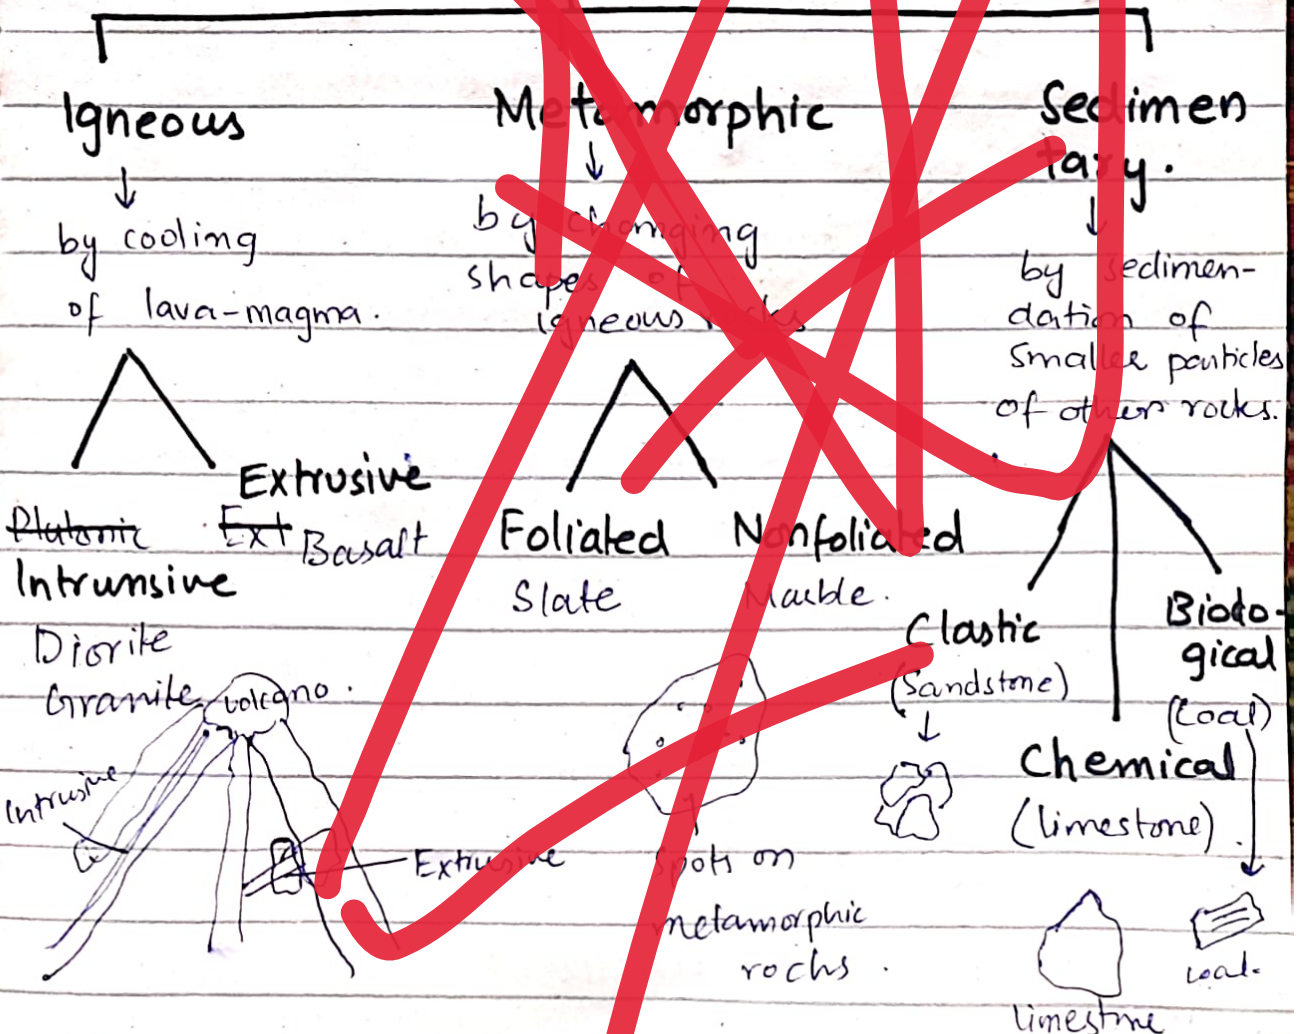 Igneous
by cooling
of lava-magma.
Extrusive
Plutonic
Ext
Basalt
Intrunsive
Diorite
Granite
volcano.
Intrusive
Extrusive
Metamorphic
by changing
shapes of
igneous rocks
Foliated
Slate
Nonfoliated
Marble.
spots on
metamorphic
rocks.
Sedimen
tary.
by sedimen-
dation of
smaller particles
of other rocks.
Clastic
(Sandstone)
Chemical
(limestone).
Biolo-
gical
(Coal)
limestone
coal.